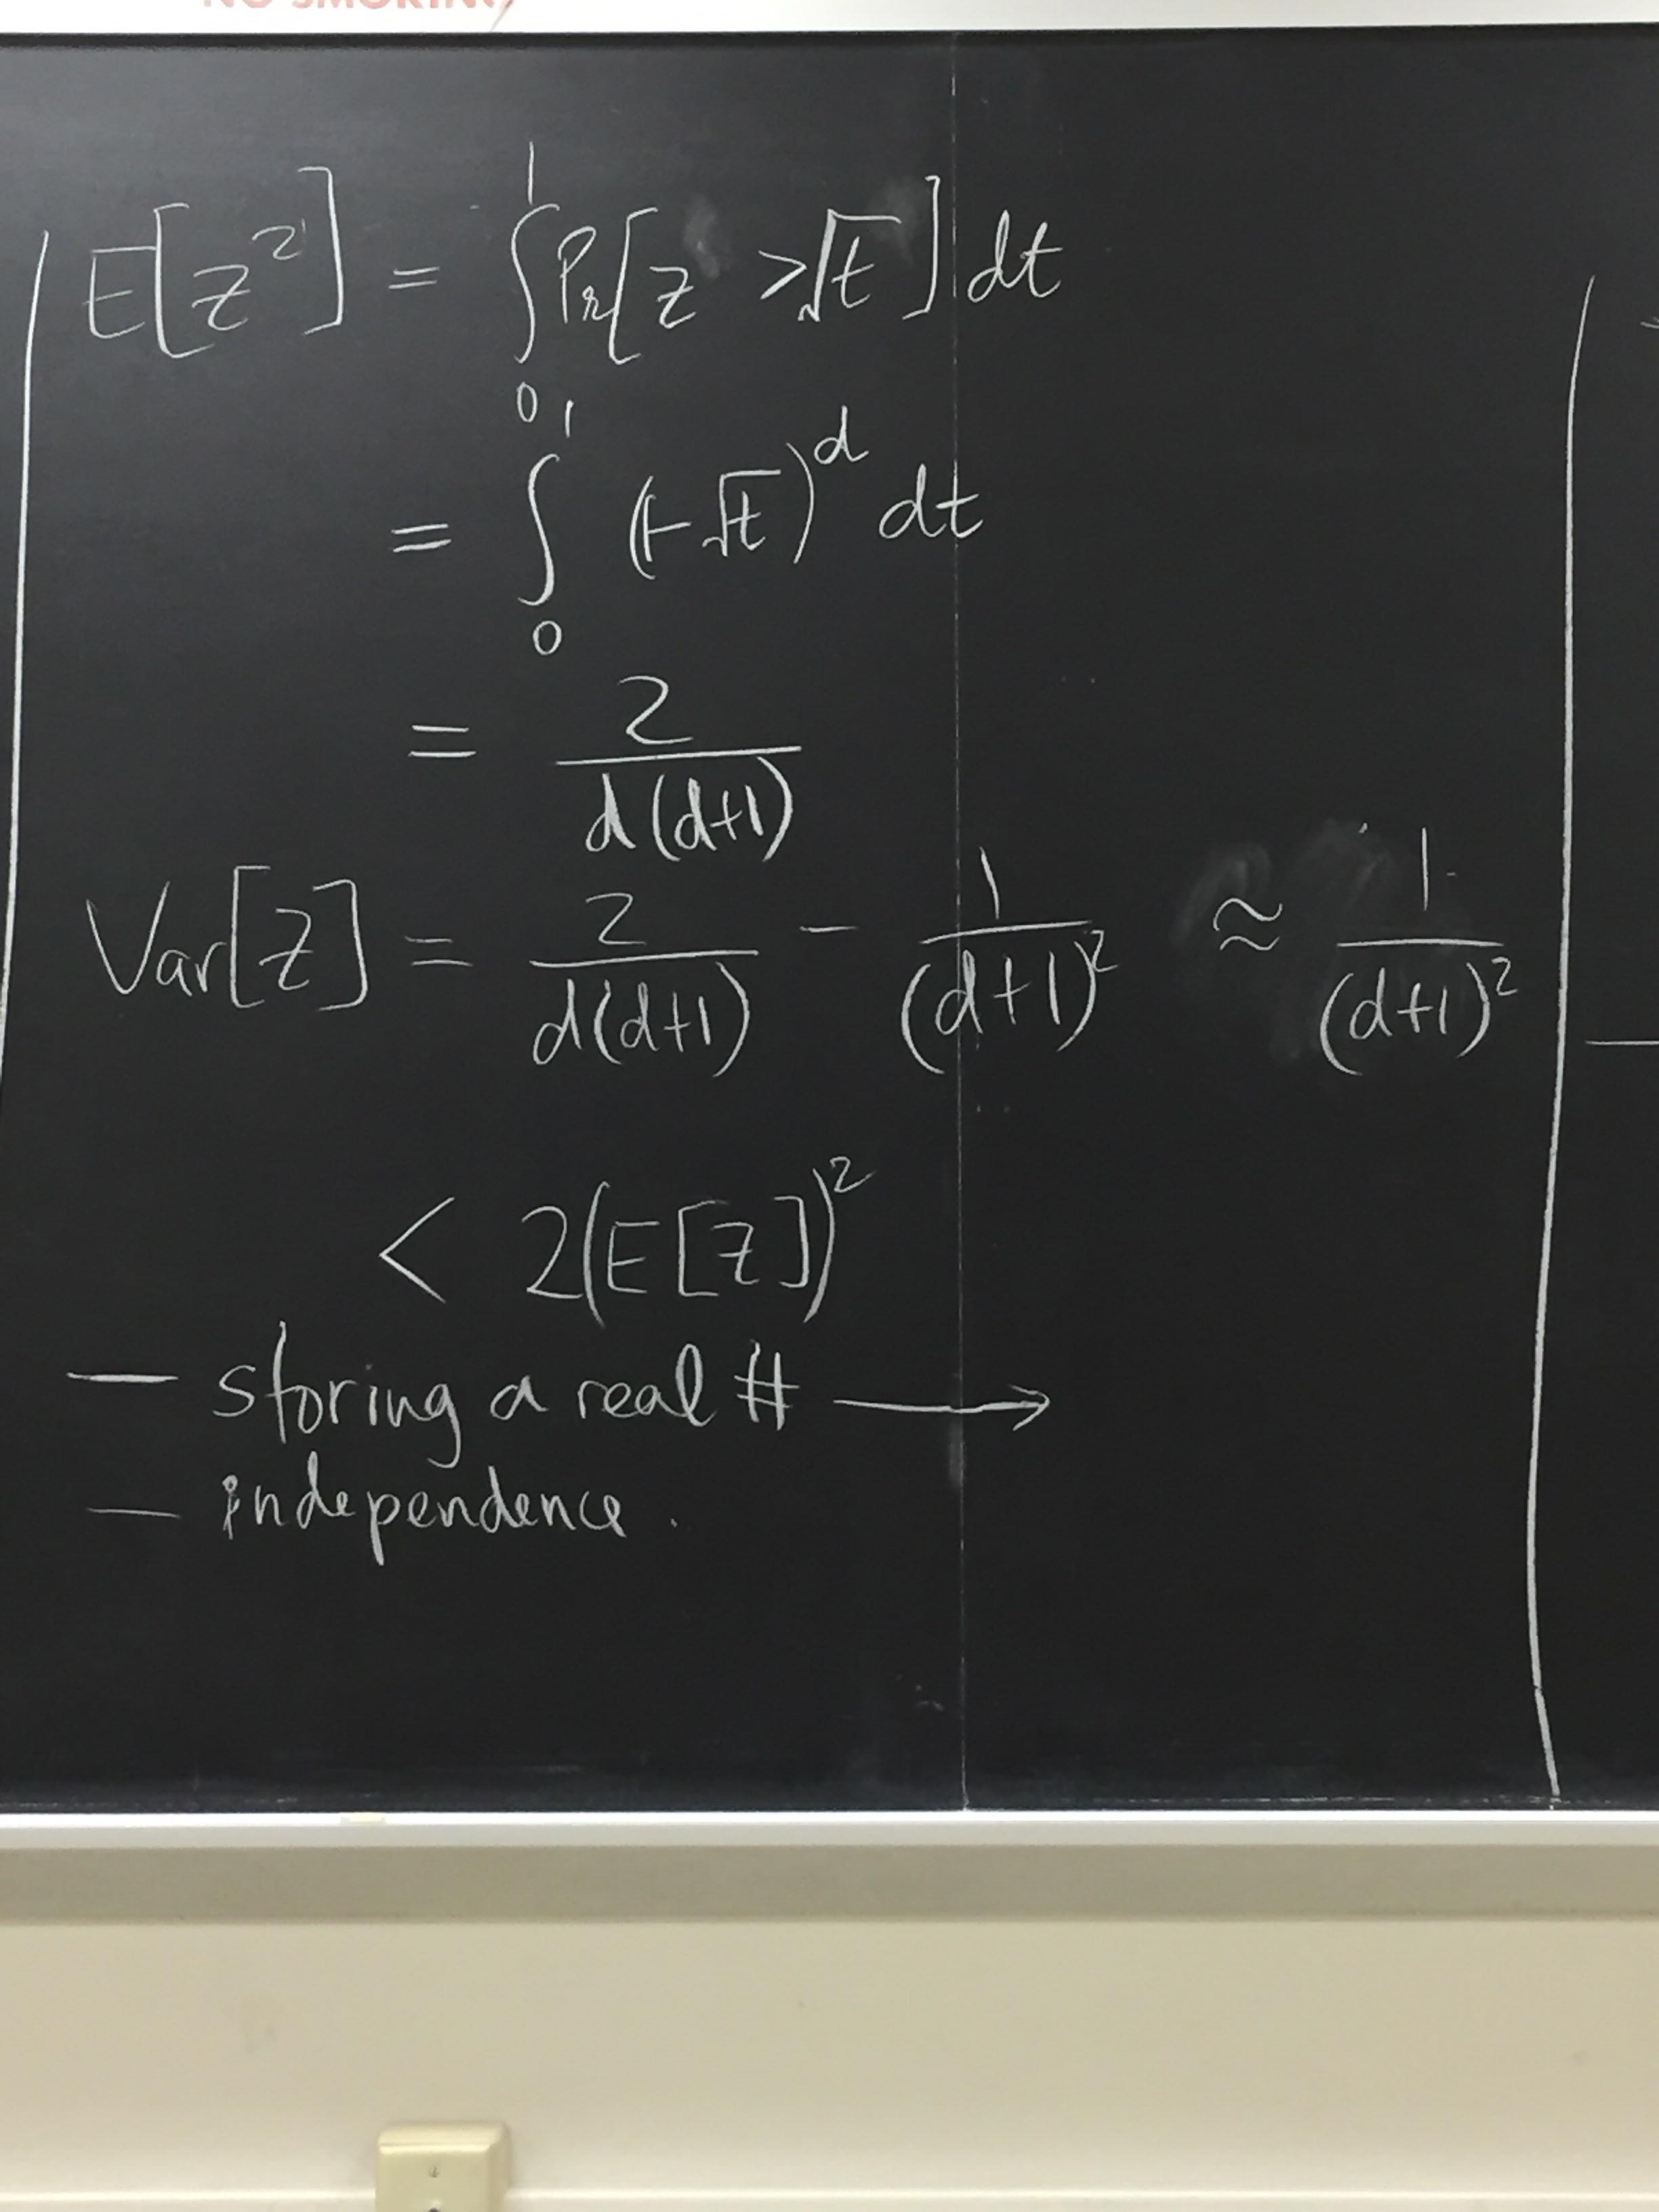 NO SMOKING
E[z²] = ∫₀¹ Pr[z > √t] dt
= ∫₀¹ (1-√t)^d dt
= 2/(d(d+1))
Var[z] = 2/(d(d+1)) - 1/(d+1)² ≈ 1/(d+1)²
< 2(E[z])²
— storing a real # →
— independence.